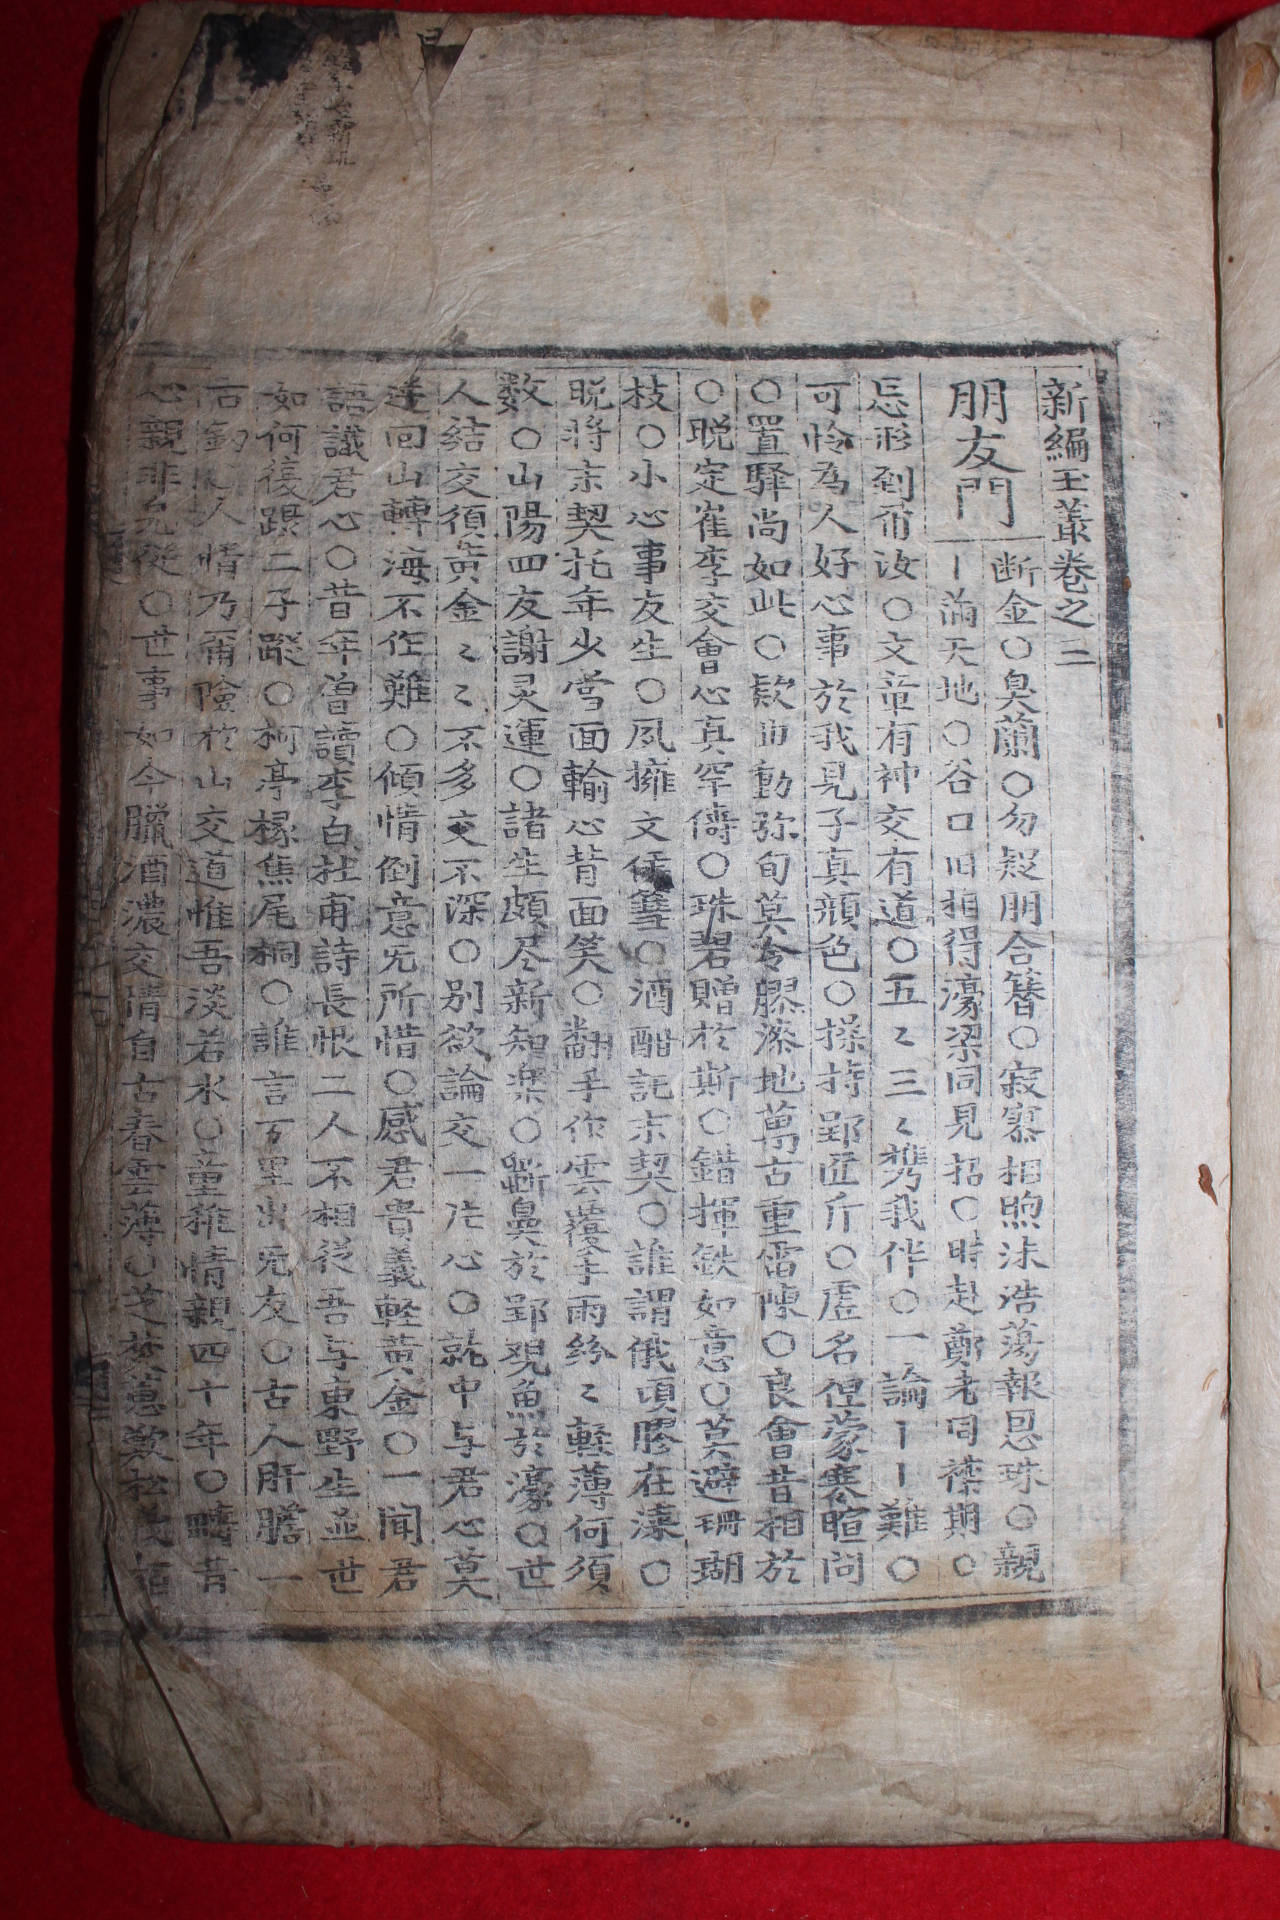 新編玉叢卷之二
朋友門
断金○臭蘭○勿疑朋合簪○寂寥相煦沫浩蕩報恩珠○親
丨滿天地○谷口旧相得濠梁同見招○時赴鄭老同襟期○
忘形到甭汝○文章有神交有道○五〻三〻携我伴○一論丨丨難○
可怜為人好心事於我見子真顔色○操持郢匠斤○虚名但蒙寒暄问
○置驛尚如此○欵曲動弥旬莫令膠漆地萬古重雷陳○良會昔相於
○晩定崔李交會心真罕儔○珠碧贈於斯○錯揮鉄如意○莫避珊瑚
枝○小心事友生○夙擁文侯篲○酒酣託末契○誰謂俄頃膠在漆○
晩将末契托年少當面輸心背面笑○翻手作雲覆手雨紛〻軽薄何須
数○山陽四友謝灵運○諸生頗尽新知楽○斲鼻於郢覌魚於濠○世
人結交須黄金〻〻不多交不深○別欲論交一片心○就中与君心莫
逆回山轉海不作難○傾情倒意无所惜○感君貴義軽黄金○一聞君
語識君心○昔年曽讀李白杜甫詩長恨二人不相従吾与東野生並世
如何復躡二子蹤○柯亭椽焦尾桐○誰言万里出无友○古人肝膽一
古劒○人情乃甭險於山交道惟吾淡若水○童稚情親四十年○疇昔
心親非面従○世事如今臘酒濃交情自古春雲薄○芝焚蕙歎松茂栢